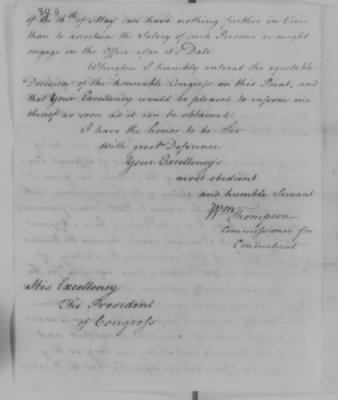 346
of the 16th of May can have nothing further in View
than to ascertain the Salary of such Persons as might
engage in the Office after it's Date.
Wherefore I humbly entreat the equitable
Decision of the honorable Congress on this Point, and
that Your Excellency would be pleased to inform me
thereof as soon as it can be obtained.
I have the honor to be Sir
With great Deference
Your Excellencys
most obedient
and humble Servant
Wm Thompson
Commissioner for
Connecticut
His Excellency
The President
of Congress